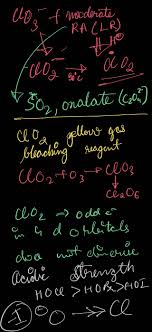 ClO3⁻ + moderate
RA (LR)
H⊕
ClO3⁻ → ClO2
SO2, oxalate (C2O4²⁻)
ClO2 yellow gas
bleaching reagent
ClO2 + O3 → ClO3
Cl2O6
ClO2 → odd e
in 4 d orbitals
does not dimerise
Acidic Strength
HOCl > HOBr > HOI
I O → Cl